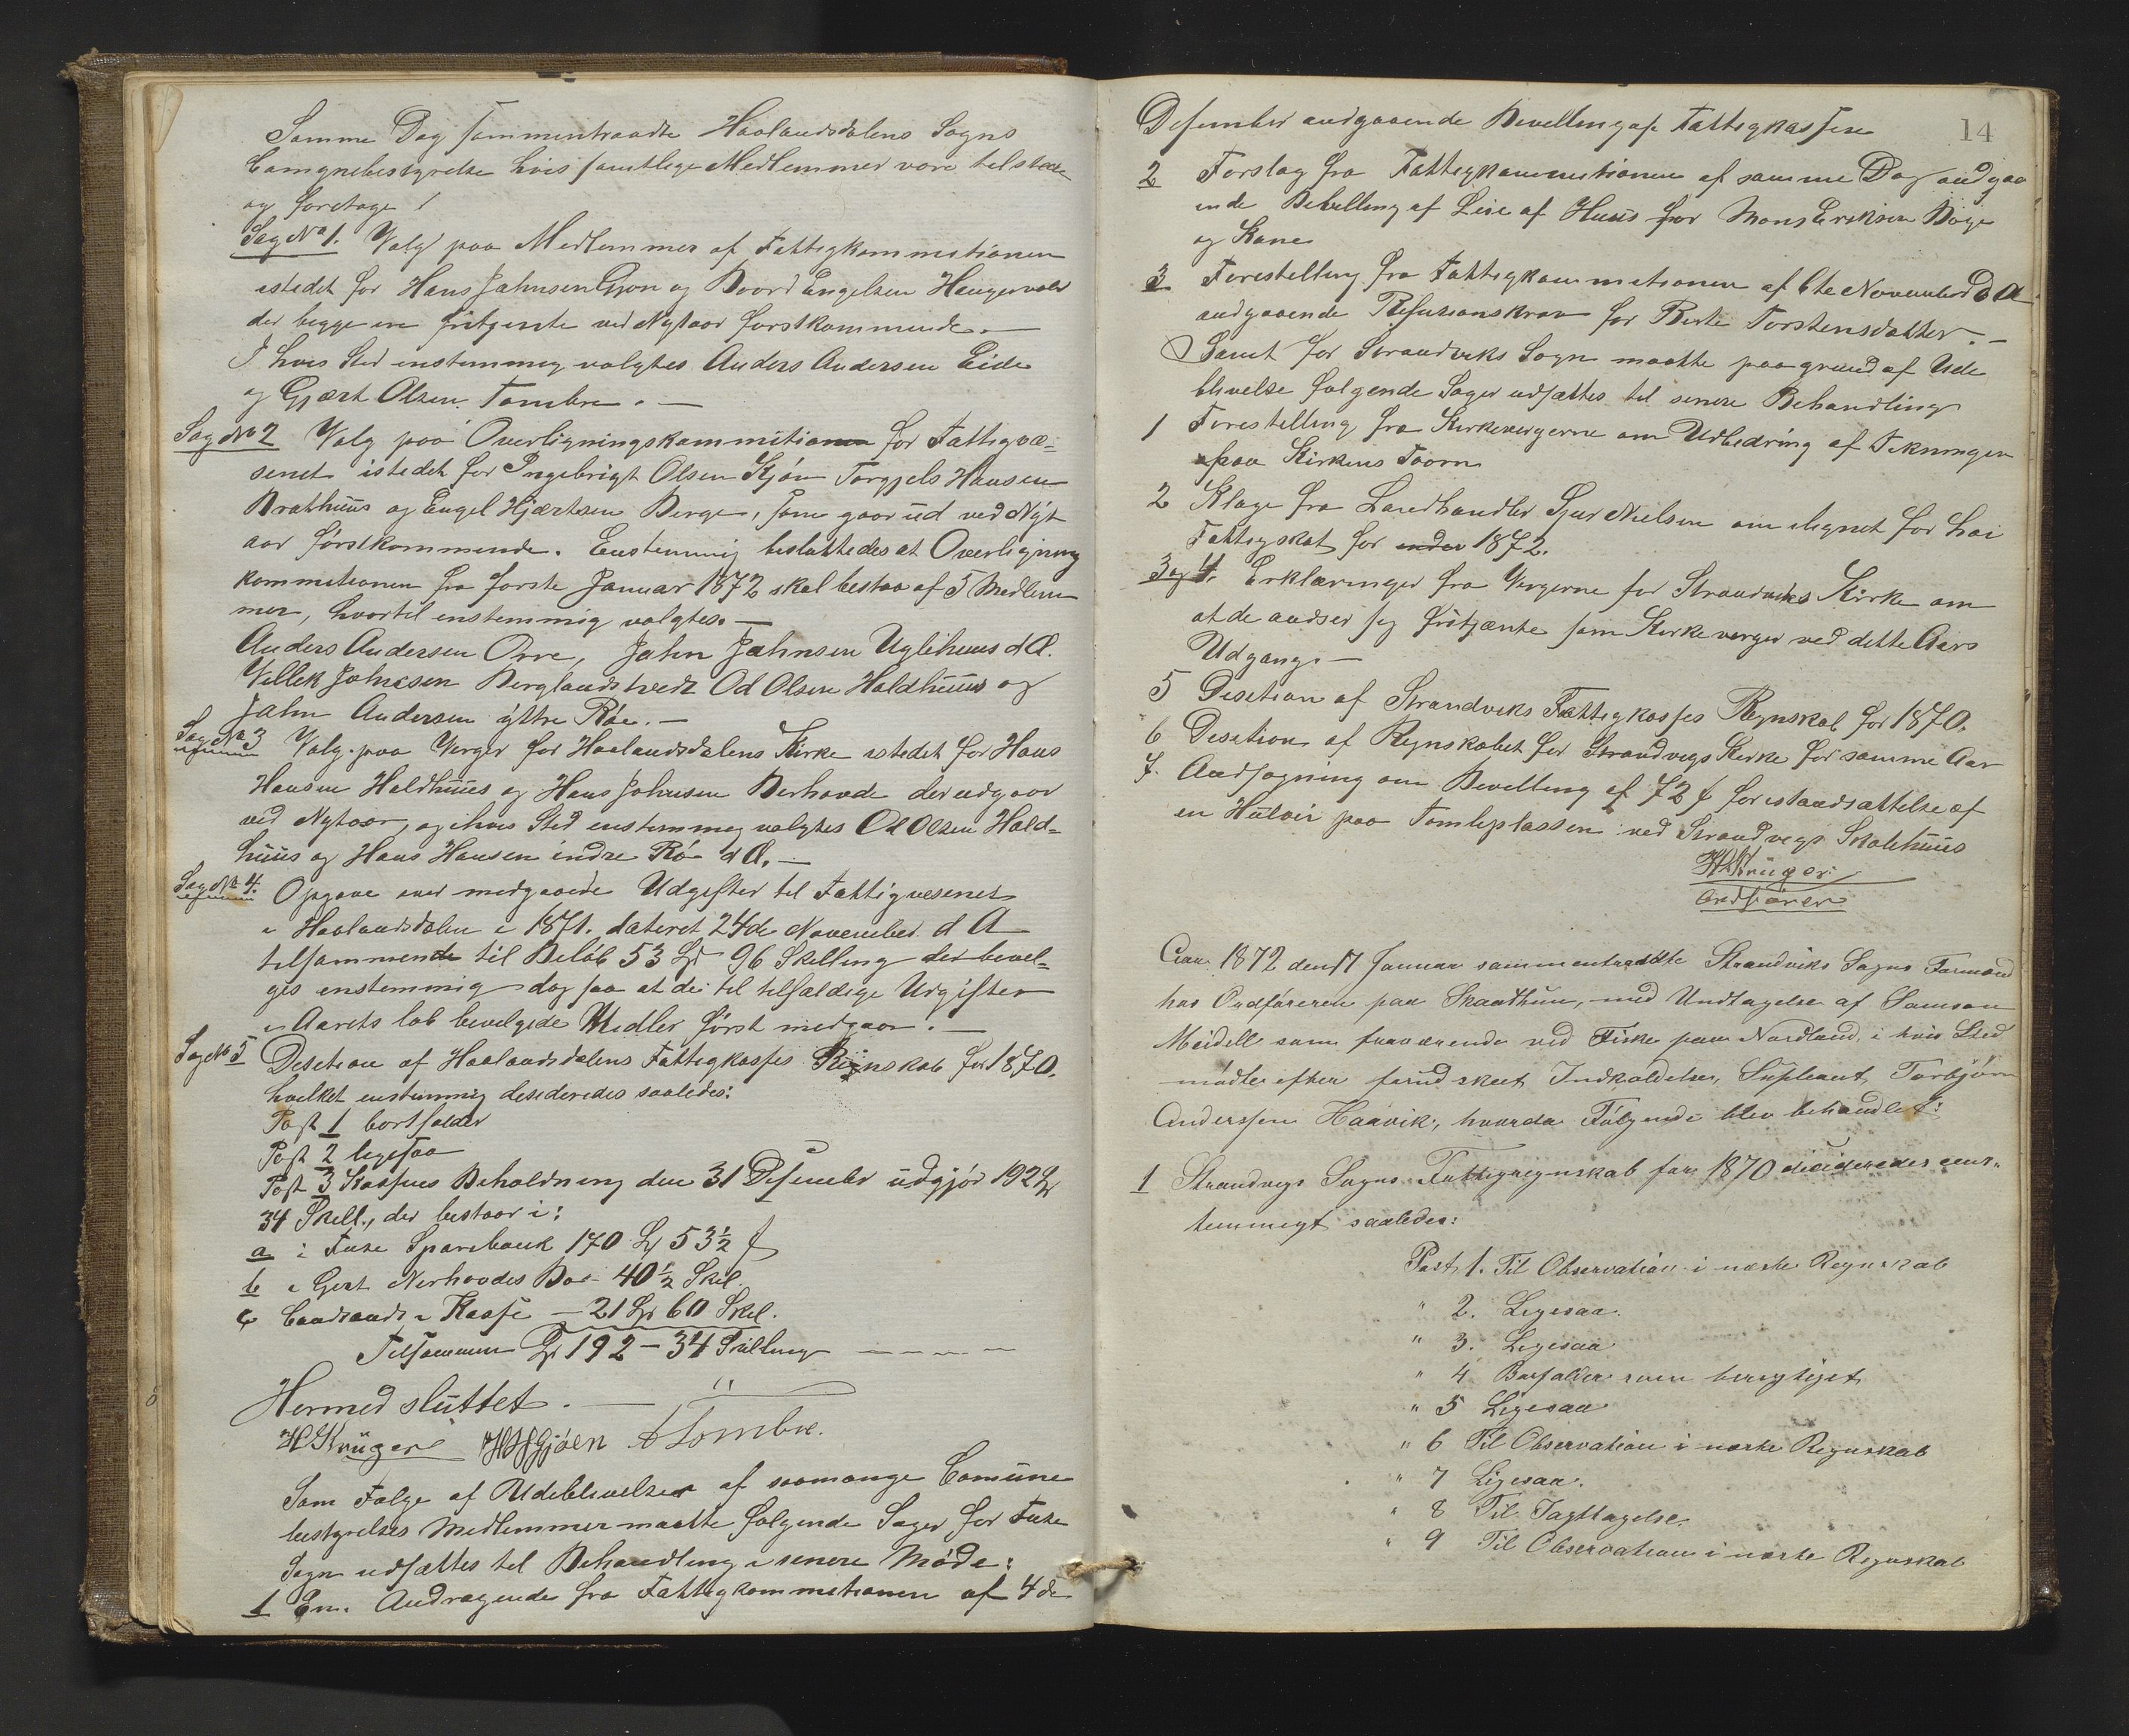 Samme Dag sammentraadte Haalandsdalens Sogns
Comunebestyrelse hvis samtlige Medlemmer vare tilstæde
og foretoge /
Sag No 1. Valg paa Medlemmer af Fattigkommitionen
istedet for Hans Jahnsen Gjøn og Baard Engelsen Hengervold
der begge ere fritjente ved Nytaar forstkommende. —
I hvis Sted enstemmig valgtes Anders Andersen Eide
og Gjært Olsen Tombre. —
Sag No 2 Valg paa Overligningskommitionen for Fattigvæ-
senet istedet for Ingebrigt Olsen Kjón Torgjels Hansen
Brathuus og Engel Hjærtsen Berge, som gaar ud ved Nyt
aar fórstkommende. Enstemmig besluttedes at Overligning
kommitionen fra forste Januar 1872 skal bestaa af 5 Medlem
mer, hvortil enstemmig valgtes. —
Anders Andersen Orre, Jahn Jahnsen Uglehuus d Æ.
Villek Johnsen Berglandstvedt Od Olsen Holdhuus og
Jahn Andersen ýttre Róe. —
Sag No 3 Valg paa Verger for Haalandsdalens Kirke istedet for Hans
Hansen Holdhuus og Hans Johnsen Berhovde der udgaar
ved Nytaar, og i hvis Sted enstemmeg valgtes Od Olsen Hold-
huus og Hans Hansen indre Ró d Æ. —
Sag No 4. Opgave over medgaaede Udgifter til Fattigvæsenet
i Haalandsdalen i 1871. dateret 24de November d A
tilsammende til Belób 53 Spd 96 Skilling der bevil-
ges enstemmig dog saa at de til tilfældige Udgifter
i Aarets lób bevilgede Midler fórst medgaar. —
Sag No 5 Desetion af Haalandsdalens Fattigkasses Regnskab for 1870.
hvilket enstemmig desideredes saaledes:
Post 1 bortfalder
Post 2 ligesaa
Post 3 Kassens Beholdning den 31 Desember údgjór 192 Spd
34 Skill., der bestaar i:
a i Fuse Sparebank 170 Spd 53½ ß
b i Gert Nerhovdes Bo - 40½ Skil.
c Contant i Kasse — 21 Spd 60 Skil.
Tilsammen Spd 192 - 34 Skilling — — — —
Hermed slúttet. —
H Krüger HHGjóen A Tombre.
Som Fólge af Udeblivelser af saamange Comúne
bestyrelses Medlemmer maatte fólgende Sager for Fuse
Sogn udsættes til Behandling i senere Móde:
1 En. Andragende fra Fattigkommitionen af 4de
14
Desember andgaaende Bevilling af Fattigkassen
2 Forslag fra Fattigkommitionen af samme Dag andgaa
ende Bebilling af Leie af Huus for Mons Eriksen Bóge
og Kone
3 Forestilling fra Fattigkommitionen af 6te November d A
andgaaende Refusionskrav for Berte Torstensdatter. —
Samt for Strandviks Sogn maatte paagrund af Ude
blivelse fólgende Sager udsættes til senere Behandling
1 Forestilling fra Kirkevergerne om Udbedring af Tekningen
paa Kirkens Taarn
2 Klage fra Landhandler Sjur Nielsen om ilignet for hói
Fattigskat for 1872.
3 og 4. Erklæringer fra Vergerne for Strandviks Kirke om
at de andser sig fritjænte som Kirkeverger ved dette Aars
Udgang. —
5 Desetion af Strandviks Fattigkasses Regnskab for 1870.
6 Desetion af Regnskabet for Strandvigs Kirke for samme Aar
7. Andsógning om Bevilling af 72 ß for istandsættelse af
en Hulvei paa Tomteplassen ved Strandvegs Skolehuus
H Krüger
Ordfórer
Aar 1872 den 17 Januar sammentraadte Strandviks Sogns Formænd
hos Ordføreren paa Skaathun, med Undtagelse af Samson
Meidell som fraværende ved Fiske paa Nordland, i hvis Sted
mødte efter forud skeet Indkaldelse, Supleant Torbjørn
Anderssen Haavik, hvorda Følgende blev behandlet:
1 Strandvigs Sogns Fattigregnskab for 1870 disideredes eens-
temmigt saaledes:
Post 1. Til Observation i næste Regnskab
" 2. Ligesaa.
" 3. Ligesaa
" 4 Borfalder som berigtiget
" 5 Ligesaa
" 6 Til Observation i næste Regnskab
" 7 Ligesaa.
" 8 Til Iagttagelse.
" 9 Til Observation i næste Regnskab